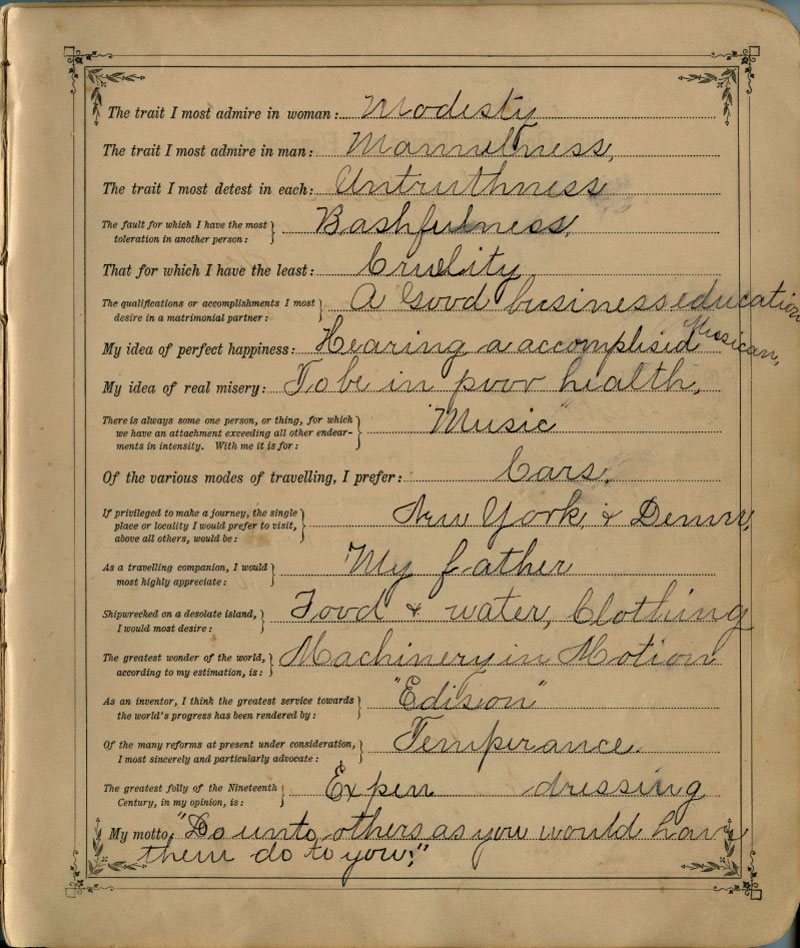 The trait I most admire in woman: Modesty
The trait I most admire in man:
The trait I most detest in each: Untruthness
The fault for which I have the most
toleration in another person: Bashfulness,
That for which I have the least: Cruelity
The qualifications or accomplishments I most
desire in a matrimonial partner: A Good business education
My idea of perfect happiness: Hearing a accomplised Mussican,
My idea of real misery: To be in poor health,
There is always some one person, or thing, for which
we have an attachment exceeding all other endear-
ments in intensity. With me it is for: "Music"
Of the various modes of travelling, I prefer: Cars,
If privileged to make a journey, the single
place or locality I would prefer to visit,
above all others, would be: New York, & Denver,
As a travelling companion, I would
most highly appreciate: My father
Shipwrecked on a desolate island,
I would most desire: Food & water, Clothing
The greatest wonder of the world,
according to my estimation, is: Machinery in Motion
As an inventor, I think the greatest service towards
the world's progress has been rendered by: "Edison"
Of the many reforms at present under consideration,
I most sincerely and particularly advocate: Temperance.
The greatest folly of the Nineteenth
Century, in my opinion, is: Expen dressing
My motto, "Do unto others as you would have
them do to you."